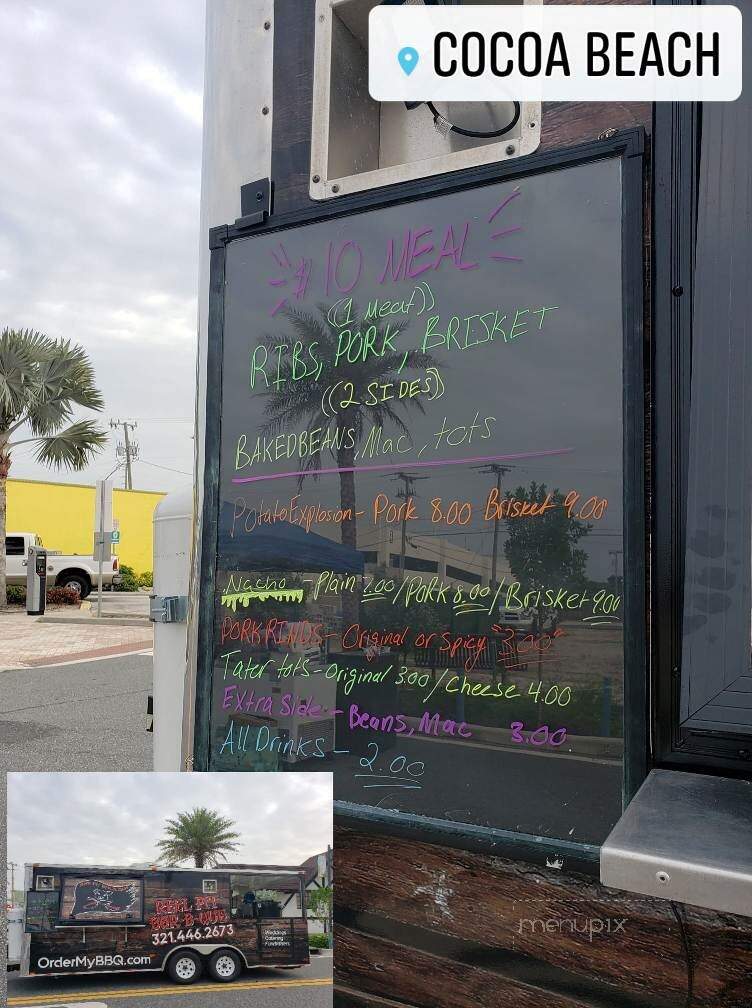 COCOA BEACH
$10 MEAL
(1 Meat))
RIBS, PORK, BRISKET
((2 SIDES))
BAKED BEANS, Mac, tots
Potato Explosion - Pork 8.00 Brisket 9.00
Nacho - Plain 7.00/Pork 8.00/Brisket 9.00
PORK RINDS - Original or Spicy "3.00"
Tater tots - Original 3.00/Cheese 4.00
Extra Side - Beans, Mac 3.00
All Drinks - 2.00
menupix
REEL PIT
BAR-B-QUE
321.446.2673
Weddings
Catering
Fundraisers
OrderMyBBQ.com